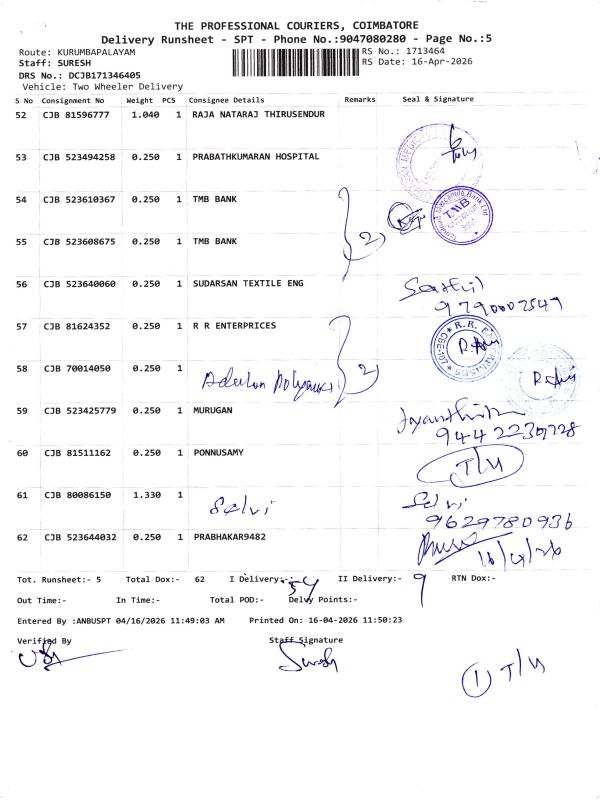 THE PROFESSIONAL COURIERS, COIMBATORE
Delivery Runsheet - SPT - Phone No.:9047080280 - Page No.:5
Route: KURUMBAPALAYAM
RS No.: 1713464
Staff: SURESH
RS Date: 16-Apr-2026
DRS No.: DCJB171346405
Vehicle: Two Wheeler Delivery
S No Consignment No Weight PCS Consignee Details Remarks Seal & Signature
52 CJB 81596777 1.040 1 RAJA NATARAJ THIRUSENDUR
53 CJB 523494258 0.250 1 PRABATHKUMARAN HOSPITAL
54 CJB 523610367 0.250 1 TMB BANK
2 TMB
55 CJB 523608675 0.250 1 TMB BANK
56 CJB 523640060 0.250 1 SUDARSAN TEXTILE ENG
9790002549
57 CJB 81624352 0.250 1 R R ENTERPRICES
58 CJB 70014050 0.250 1
2
59 CJB 523425779 0.250 1 MURUGAN
9442230728
60 CJB 81511162 0.250 1 PONNUSAMY
T/U
61 CJB 80086150 1.330 1 Selvi Selvi
9629780936
62 CJB 523644032 0.250 1 PRABHAKAR9482
16/4/26
Tot. Runsheet:- 5 Total Dox:- 62 I Delivery:- 54 II Delivery:- 9 RTN Dox:-
Out Time:- In Time:- Total POD:- Delvy Points:-
Entered By :ANBUSPT 04/16/2026 11:49:03 AM Printed On: 16-04-2026 11:50:23
Verified By Staff Signature
Suresh
1 T/U